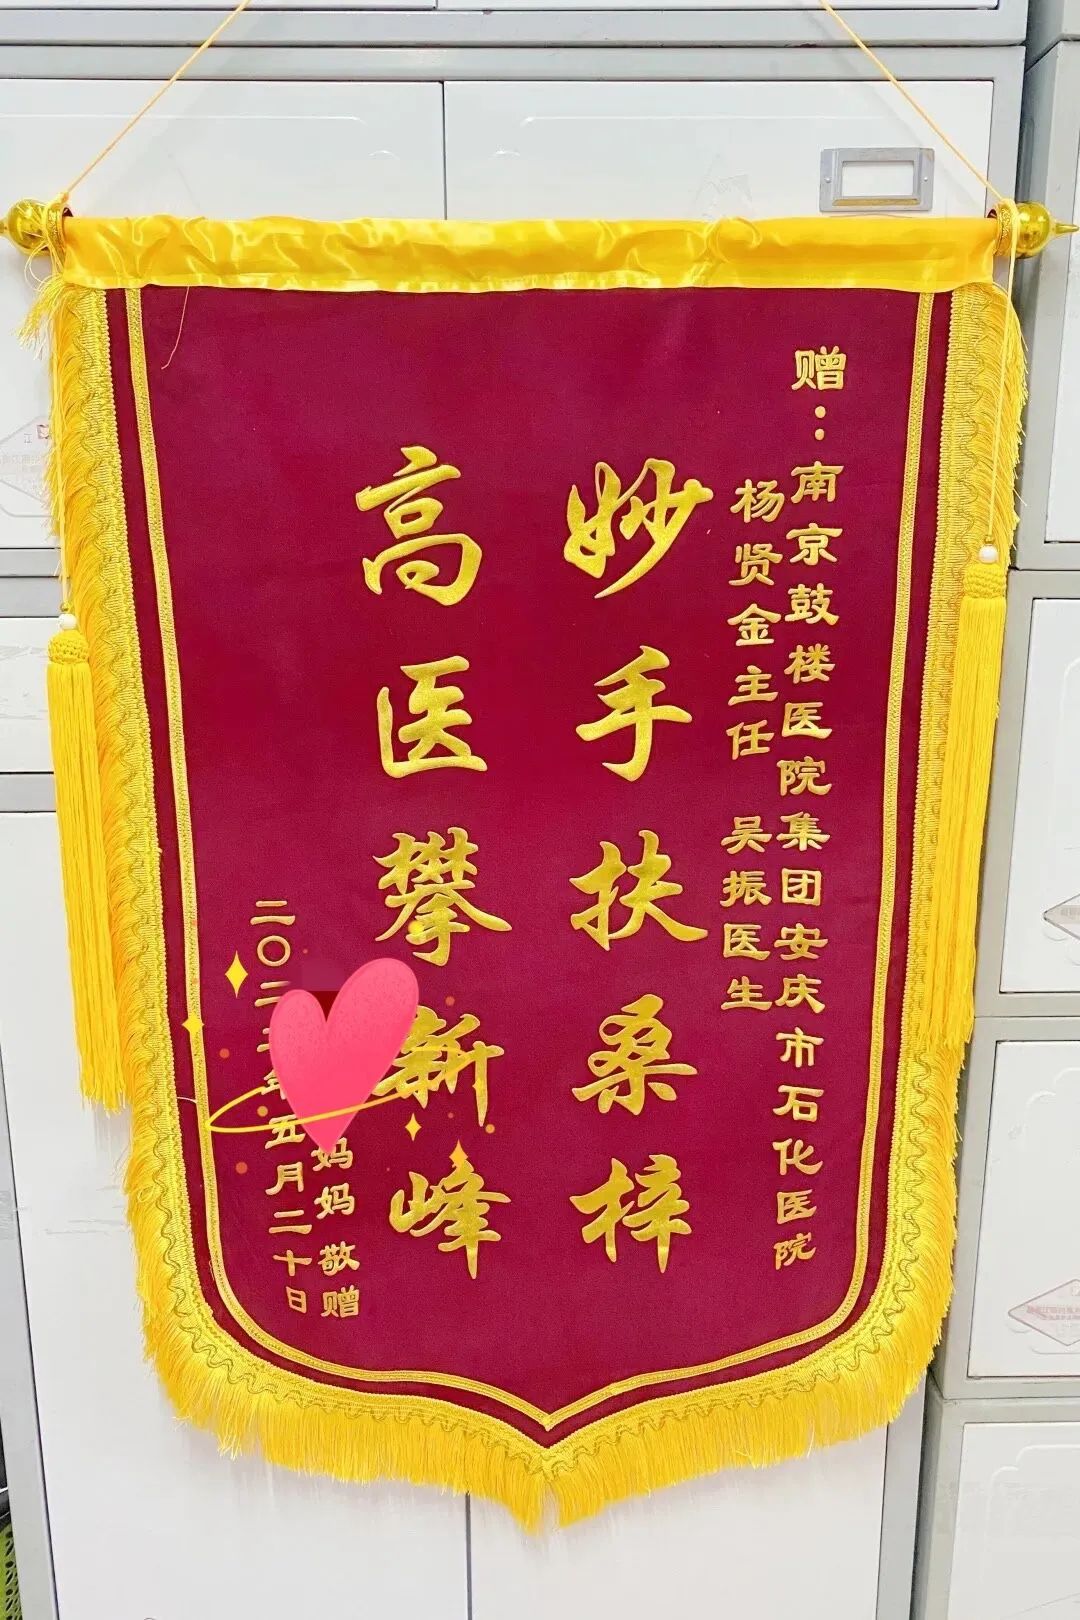 赠：南京鼓楼医院集团安庆市石化医院
杨贤金主任 吴振医生
妙手扶桑梓
高医攀新峰
妈妈 敬赠
二〇二二年五月二十日